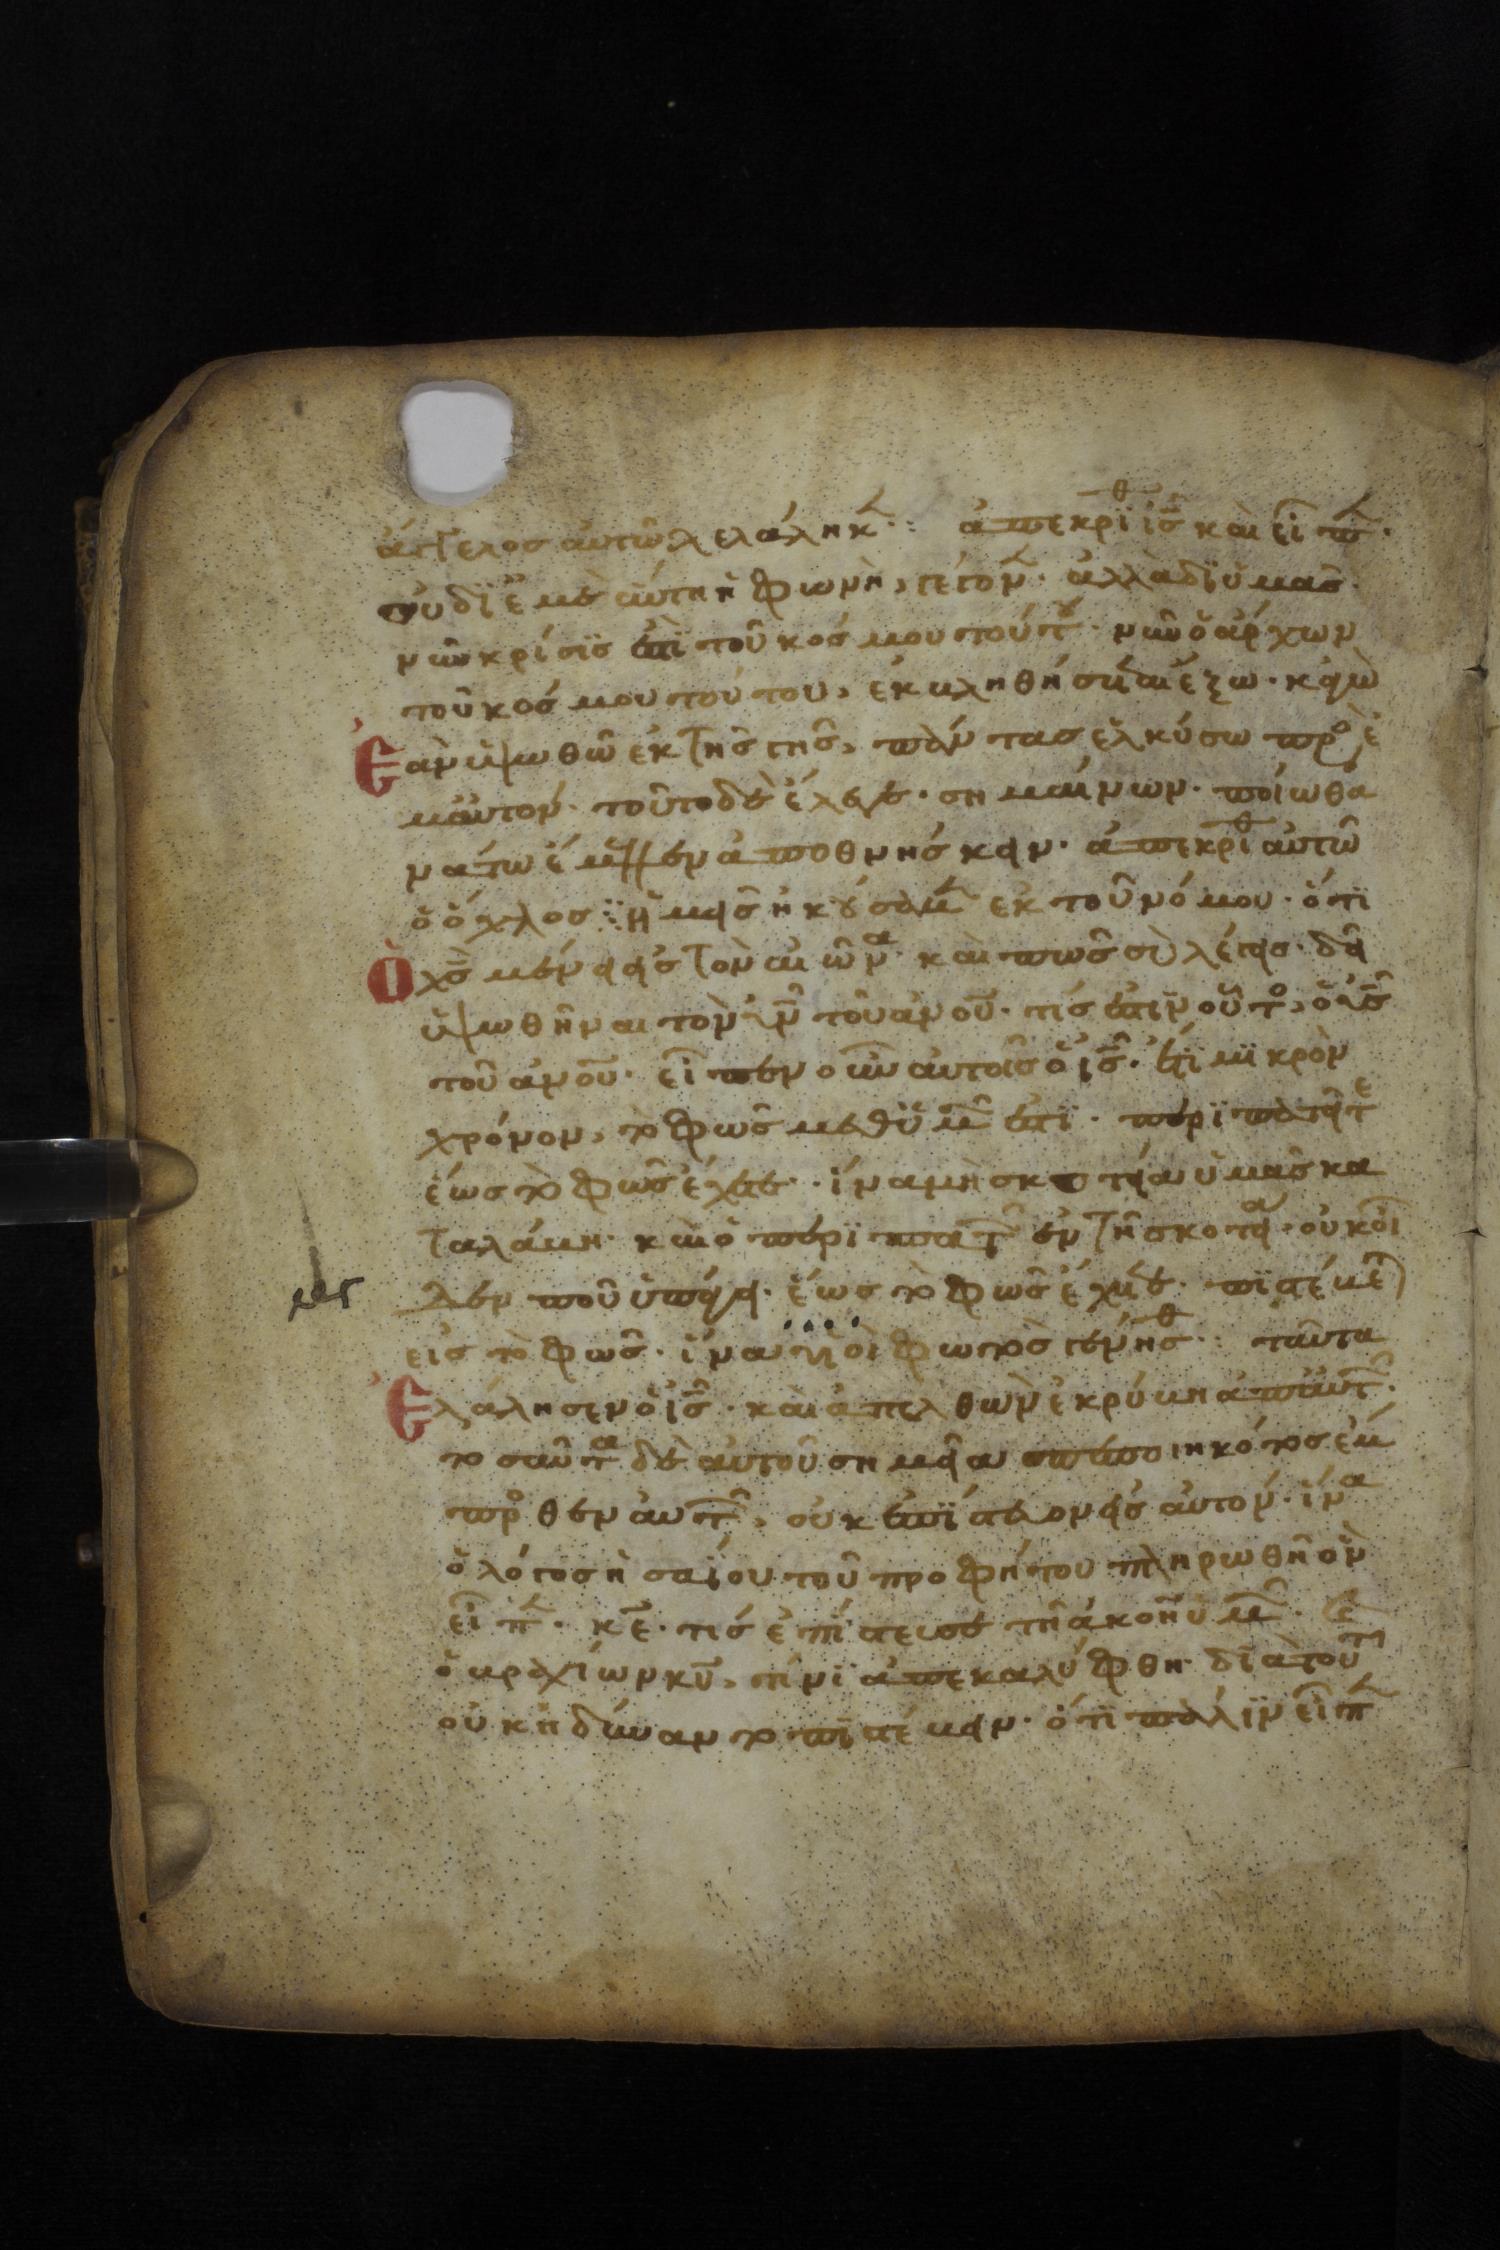 ἄγγελος αὐτῶ λελάληκ· ἀπεκρίθ ις καὶ εἶπ·
οὐ δι ἐμὲ αὕτη ἡ φωνὴ, γέγον· ἀλλὰ δι ὑμας·
νῦν κρίσις ἐστὶ τοῦ κόσμου τούτου· νῦν ὁ ἄρχων
τοῦ κόσμου τούτου, ἐκβληθήσεται ἔξω· κἀγὼ
ἐὰν ὑψωθῶ ἐκ τῆς γῆς, πάντας ἑλκύσω προ ἐ
μαυτόν· τοῦτο δὲ ἔλεγε· σημαίνων· ποίω θα
νάτω ἔμελλεν ἀποθνήσκειν· ἀπεκρίθ αὐτῶ
ὁ ὄχλος ἡμεῖς ἠκούσαμ ἐκ τοῦ νόμου· ὅτι
ὁ χς μένει εἰς τὸν αἰῶνα· καὶ πῶς σὺ λέγεις· δεῖ
ὑψωθῆναι τὸν υν τοῦ ανου· τίς ἐστιν οὗτο, ὁ υς
τοῦ ανου· εἶπεν οὖν αὐτοῖς ὁ ις· ἔτι μικρὸν
χρόνον, τὸ φῶς μεθ ὑμ ἐστι· περιπατεῖτε
ἕως τὸ φῶς ἔχετε· ἵνα μὴ σκοτία ὑμᾶς κα
ταλάβη· καὶ ὁ περιπατ ἐν τῆ σκοτεία· οὐκ οἶ
δεν ποῦ ὑπάγει· ἕως τὸ φῶς ἔχετε· πιστεύε
εἰς τὸ φῶς· ἵνα υἱοὶ φωτὸς γένησθ· ταῦτα
ἐλάλησεν ὁ ις· καὶ ἀπελθὼν ἐκρύβη ἀπ αὐτ·
τοσαῦτα δὲ αὐτοῦ σημεῖα πεποιηκότος ἔμ
προθεν αὐτ, οὐκ ἐπίστευον εἰς αὐτόν· ἵνα
ὁ λόγος ἡσαΐου τοῦ προφήτου πληρωθῆ ὃν
εἶπ· κε· τίς ἐπίστευσε τῆ ἀκοῆ ὑμ·
ὁ βραχίων κυ, τίνι ἀπεκαλύφθη· διὰ τοῦτ
οὐκ ἠδύναν το πιστεύειν· ὅτι πάλιν εἶπ